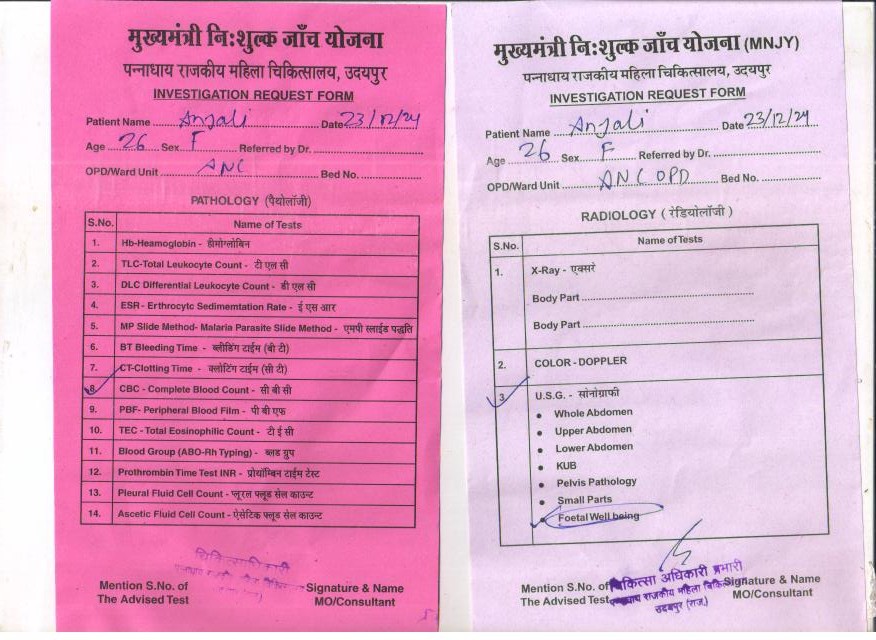 मुख्यमंत्री नि:शुल्क जाँच योजना
पन्नाधाय राजकीय महिला चिकित्सालय, उदयपुर
INVESTIGATION REQUEST FORM
Patient Name Anjali Date 23/12/24
Age 26 Sex F Referred by Dr.
OPD/Ward Unit ANC Bed No.
PATHOLOGY (पैथोलॉजी)
S.No. Name of Tests
1. Hb-Heamoglobin - हीमोग्लोबिन
2. TLC-Total Leukocyte Count - टी एल सी
3. DLC Differential Leukocyte Count - डी एल सी
4. ESR - Erthrocytc Sedimemtation Rate - ई एस आर
5. MP Slide Method- Malaria Parasite Slide Method - एमपी स्लाईड पद्धति
6. BT Bleeding Time - ब्लीडिंग टाईम (बी टी)
7. CT-Clotting Time - क्लोटिंग टाईम (सी टी)
8. CBC - Complete Blood Count - सी बी सी
9. PBF- Peripheral Blood Film - पी बी एफ
10. TEC - Total Eosinophilic Count - टी ई सी
11. Blood Group (ABO-Rh Typing) - ब्लड ग्रुप
12. Prothrombin Time Test INR - प्रोथॉम्बिन टाईम टेस्ट
13. Pleural Fluid Cell Count - प्लूरल फ्लूड सेल काउन्ट
14. Ascetic Fluid Cell Count - ऐसेटिक फ्लूड सेल काउन्ट
चिकित्साधिकारी
Mention S.No. of Signature & Name
The Advised Test MO/Consultant
मुख्यमंत्री नि:शुल्क जाँच योजना (MNJY)
पन्नाधाय राजकीय महिला चिकित्सालय, उदयपुर
INVESTIGATION REQUEST FORM
Patient Name Anjali Date 23/12/24
Age 26 Sex F Referred by Dr.
OPD/Ward Unit ANC OPD Bed No.
RADIOLOGY (रेडियोलॉजी)
S.No. Name of Tests
1. X-Ray - एक्सरे
Body Part
Body Part
2. COLOR - DOPPLER
3. U.S.G. - सोनोग्राफी
Whole Abdomen
Upper Abdomen
Lower Abdomen
KUB
Pelvis Pathology
Small Parts
Foetal Well being
Mention S.No. of Signature & Name
The Advised Test MO/Consultant
चिकित्सा अधिकारी प्रभारी
पन्नाधाय राजकीय महिला चिकित्सालय
उदयपुर (राज.)